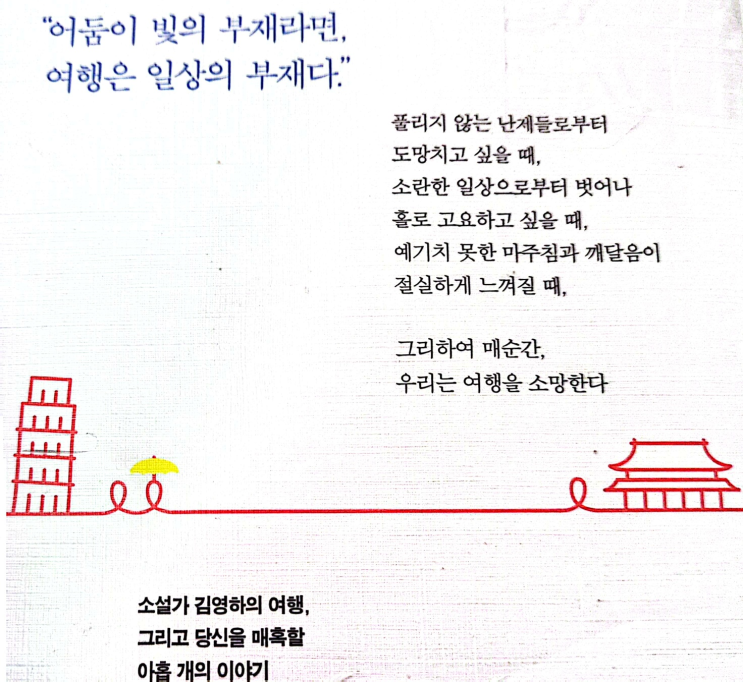 “어둠이 빛의 부재라면,
여행은 일상의 부재다.”
풀리지 않는 난제들로부터
도망치고 싶을 때,
소란한 일상으로부터 벗어나
홀로 고요하고 싶을 때,
예기치 못한 마주침과 깨달음이
절실하게 느껴질 때,
그리하여 매순간,
우리는 여행을 소망한다
소설가 김영하의 여행,
그리고 당신을 매혹할
아홉 개의 이야기